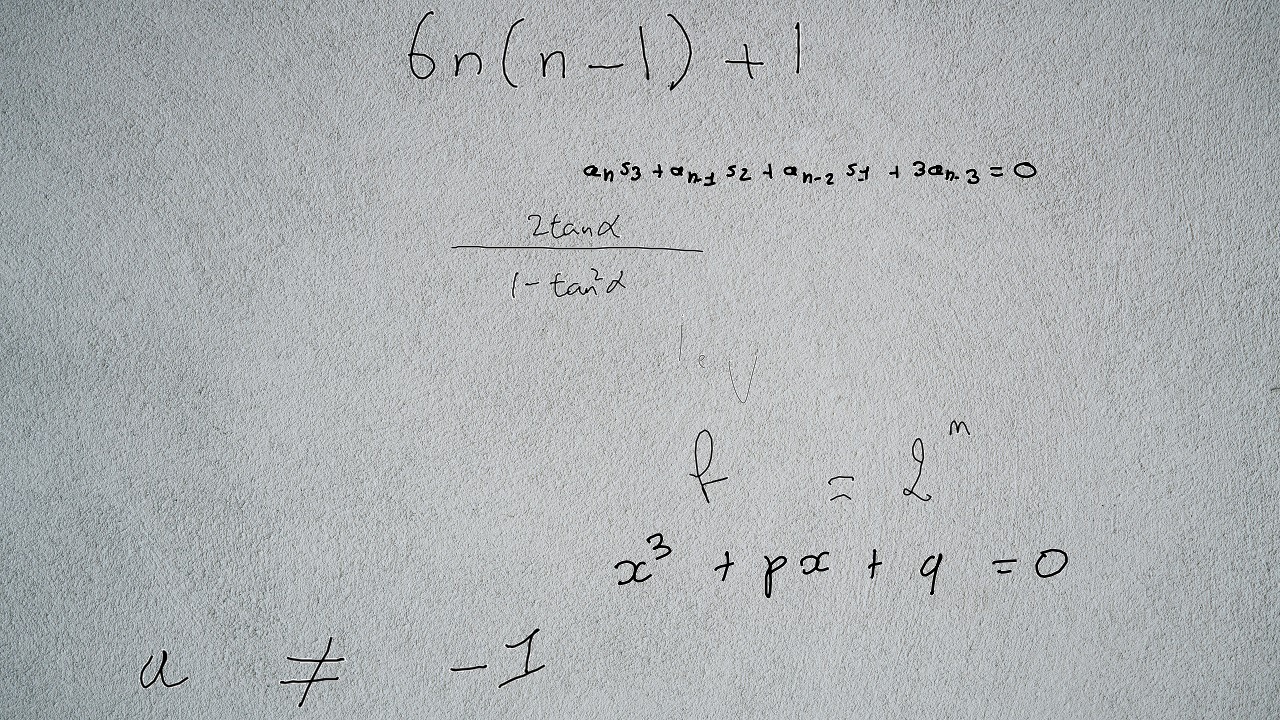 6n(n-1)+1
aₙs₃ + aₙ₋₁s₂ + aₙ₋₂s₁ + 3aₙ₋₃ = 0
2tanα
1-tan²α
f = 2ᵐ
x³ + px + q = 0
a ≠ -1